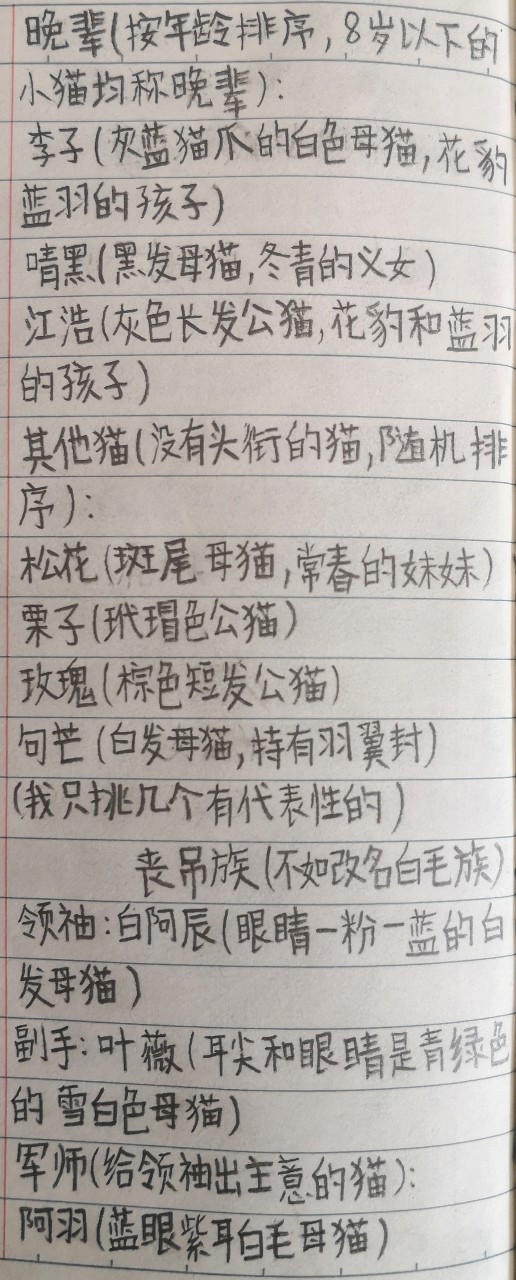 晚辈(按年龄排序,8岁以下的
小猫均称晚辈):
李子(灰蓝猫爪的白色母猫,花豹
蓝羽的孩子)
晴黑(黑发母猫,冬青的义女)
江浩(灰色长发公猫,花豹和蓝羽
的孩子)
其他猫(没有头衔的猫,随机排
序):
松花(斑尾母猫,常春的妹妹)
栗子(玳瑁色公猫)
玫瑰(棕色短发公猫)
句芒(白发母猫,持有羽翼封)
(我只挑几个有代表性的)
丧吊族(不如改名白毛族)
领袖:白阿辰(眼睛一粉一蓝的白
发母猫)
副手:叶薇(耳尖和眼睛是青绿色
的雪白色母猫)
军师(给领袖出主意的猫):
阿羽(蓝眼紫耳白毛母猫)